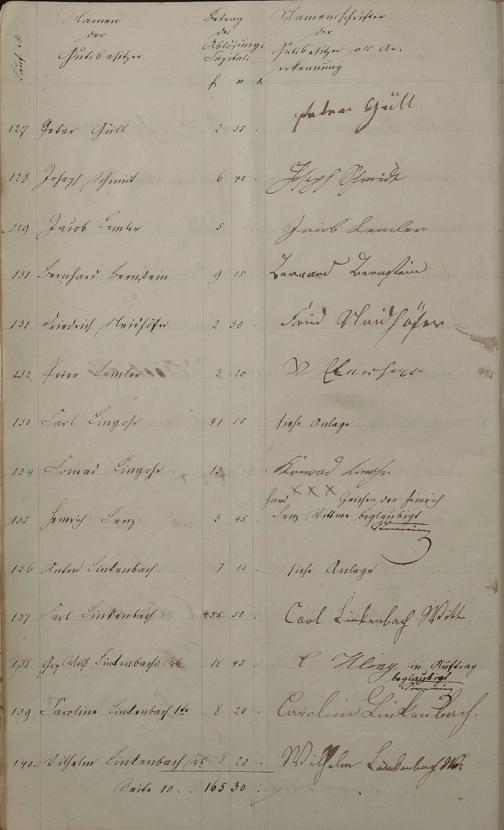 Lauf. №
Namen
der
Gutsbesitzer
Betrag
des
Ablösungs
Capitals
f x h
Namensschriften
der
Gutsbesitzer als An-
erkennung
127 Peter Güll 2 55 . Peter Güll
128 Joseph Schmidt 6 40 . Joseph Schmidt
129 Jacob Lemler 5 . Jacob Lemler
130 Bernhard Bernstein 9 15 Bernhard Bernstein
131 Friedrich Neidhöfer 2 30 Fried Neidhöfer
132 Peter Lemler 2 20
133 Carl Lingohr 41 55 siehe Anlage
134 Conrad Lingohr 13 . Konrad
135 Heinrich Lenz 3 45 . Hand XXX Zeichen der Heinrich
Lenz Wittwe beglaubigt
136 Anton Linkenbach 7 10 siehe Anlage
137 Carl Linkenbach 50 Carl Linkenbach Witt
138 Wilh Linkenbachs 18 45 Kling in Auftrag
beglaubigt
139 Caroline Linkenbach 8 20 . Carolina Linkenbach.
140. Wilhelm Linkenbach 8 20 . Wilhelm Linkenbach
Seite 10 . . 165 30 .